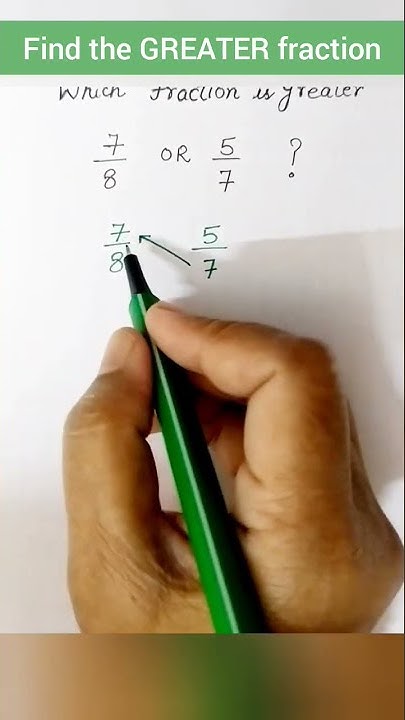 Find the GREATER fraction
Which fraction is greater
7/8 OR 5/7 ?
7/8 5/7